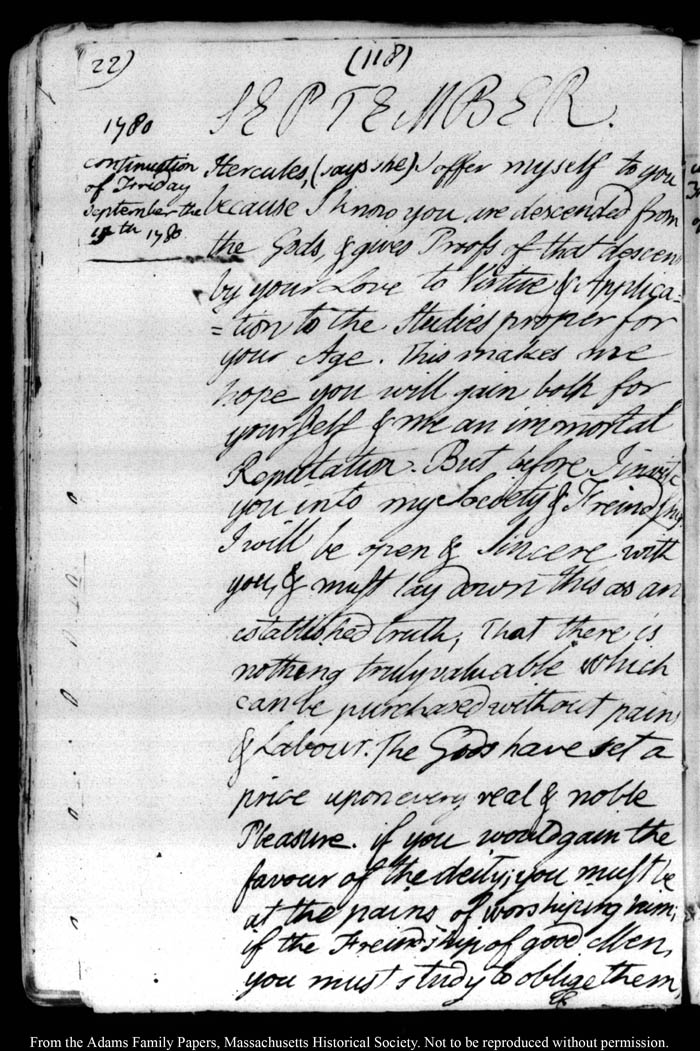 22)
(118)
SEPTEMBER.
1780
continuation
of Friday
September the
th 1780
Hercules, (says she) I offer myself to you
because I know you are descended from
the Gods, & gives Proofs of that descent
by your Love to Virtue & Applica=
=tion to the Studies proper for
your Age. This makes me
hope you will gain both for
yourself & me an immortal
Reputation. But before I invite
you into my Society & Freindship
I will be open & Sincere with
you, & must lay down this as an
established truth, That there is
nothing truly valuable which
can be purchased without pains
& Labour. The Gods have set a
price upon every real & noble
Pleasure. if you would gain the
favour of the deity; you must be
at the pains of worshiping him;
if the Freindship of good Men,
you must study to oblige them
&c
From the Adams Family Papers, Massachusetts Historical Society. Not to be reproduced without permission.